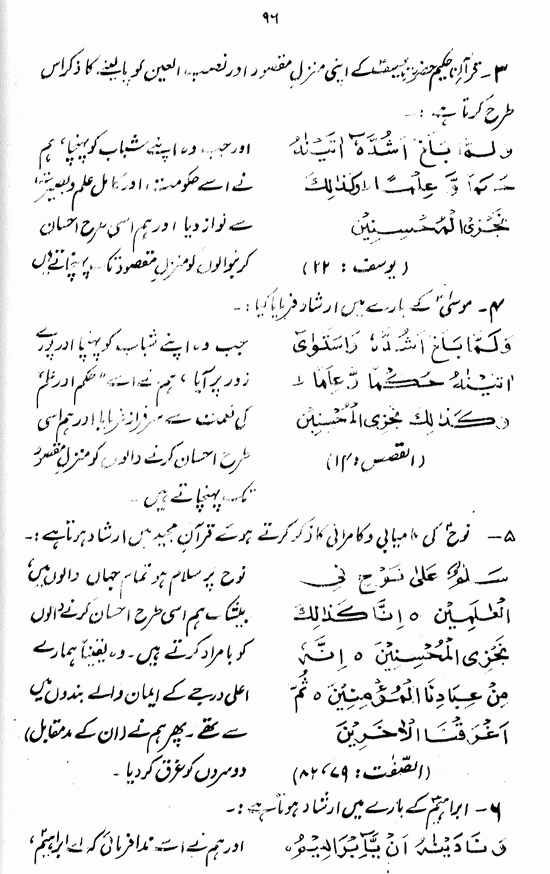 ۹۶
۳۔ قرآن حکیم حضرت یوسفؑ کے اپنی منزلِ مقصود اور نصب العین کو پا لینے کا ذکر اس
طرح کرتا ہے :۔
وَلَمَّا بَلَغَ اَشُدَّهٗ اٰتَیْنٰهُ
حُکْمًا وَّ عِلْمًا ؕ وَکَذٰلِكَ
نَجْزِی الْمُحْسِنِیْنَ
(یوسف : ۲۲)
اور جب وہ اپنے شباب کو پہنچا، ہم
نے اسے حکومت، اور کامل علم و بصیرت
سے نواز دیا اور ہم اسی طرح احسان
کرنیوالوں کو منزلِ مقصود تک پہنچاتے ہیں
۴۔ موسیٰؑ کے بارے میں ارشاد فرمایا گیا :۔
وَلَمَّا بَلَغَ اَشُدَّهٗ وَاسْتَوٰۤی
اٰتَیْنٰهُ حُکْمًا وَّعِلْمًا ؕ
وَکَذٰلِكَ نَجْزِی الْمُحْسِنِیْنَ
(القصص : ۱۴)
جب وہ اپنے شباب کو پہنچا اور پورے
زور پر آیا، ہم نے اسے "حکم اور علم"
کی نعمت سے سرفراز فرمایا اور ہم اسی
طرح احسان کرنے والوں کو منزلِ مقصود
تک پہنچاتے ہیں۔
۵۔ نوحؑ کی کامیابی و کامرانی کا ذکر کرتے ہوئے قرآنِ مجید میں ارشاد ہوتا ہے :۔
سَلٰمٌ عَلٰی نُوْحٍ فِی
الْعٰلَمِیْنَ ○ اِنَّا کَذٰلِكَ
نَجْزِی الْمُحْسِنِیْنَ ○ اِنَّهٗ
مِنْ عِبَادِنَا الْمُؤْمِنِیْنَ ○ ثُمَّ
اَغْرَقْنَا الْاٰخَرِیْنَ
(الصّٰفّٰت : ۷۹، ۸۲)
نوح پر سلام ہو تمام جہاں والوں میں،
بیشک ہم اسی طرح احسان کرنے والوں
کو بامراد کرتے ہیں۔ وہ یقیناً ہمارے
اعلیٰ درجے کے ایمان والے بندوں میں
سے تھے۔ پھر ہم نے (ان کے مدمقابل)
دوسروں کو غرق کر دیا۔
۶۔ ابراہیمؑ کے بارے میں ارشاد ہوتا ہے :۔
وَنَادَیْنٰهُ اَنْ یّٰۤاِبْرٰهِیْمُ ○
اور ہم نے اسے ندا فرمائی کہ اے ابراہیمؑ،